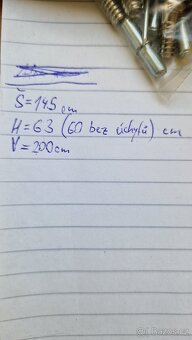 Š = 145 cm
H = 63 (60 bez úchytů) cm
V = 200cm